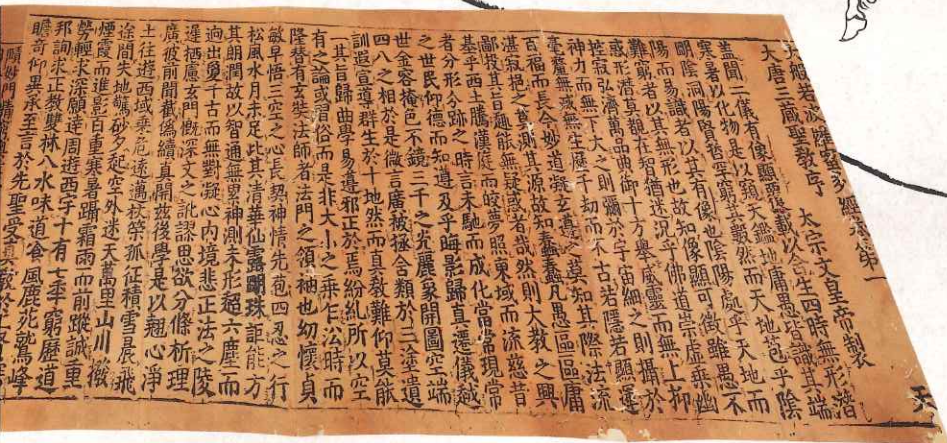 大般若波羅蜜多經卷第一
大唐三藏聖教序 太宗文皇帝製
蓋聞二儀有像顯覆載以含生四時無形潛
寒暑以化物是以窺天鑑地庸愚皆識其端
明陰洞陽賢哲罕窮其數然而天地苞乎陰
陽而易識者以其有像也陰陽處乎天地而
難窮者以其無形也故知像顯可徵雖愚不
惑形潛莫覩在智猶迷況乎佛道崇虛乘幽
控寂弘濟萬品典御十方舉威靈而無上抑
神力而無下大之則彌於宇宙細之則攝於
毫釐無滅無生歷千劫而不古若隱若顯運
百福而長今妙道凝玄遵之莫知其際法流
湛寂挹之莫測其源故知蠢蠢凡愚區區庸
鄙投其旨趣能無疑惑者哉然則大教之興
基乎西土騰漢庭而皎夢照東域而流慈昔
者分形分跡之時言未馳而成化當常現常
之世民仰德而知遵及乎晦影歸真遷儀越
世金容掩色不鏡三千之光麗象開圖空端
四八之相於是微言廣被拯含類於三塗遺
訓遐宣導群生於十地然而真教難仰莫能
一其旨歸曲學易遵邪正於焉紛糺所以空
有之論或習俗而是非大小之乘乍㳂時而
隆替有玄奘法師者法門之領袖也幼懷貞
敏早悟三空之心長契神情先苞四忍之行
松風水月未足比其清華仙露明珠詎能方
其朗潤故以智通無累神測未形超六塵而
迥出敻千古而無對凝心內境悲正法之陵
遲栖慮玄門慨深文之訛謬思欲分條析理
廣彼前聞截偽續真開茲後學是以翹心淨
土往遊西域乘危遠邁杖策孤征積雪晨飛
途間失地驚砂夕起空外迷天萬里山川撥
煙霞而進影百重寒暑躡霜雨而前蹤誠重
勞輕求深願達周遊西宇十有七年窮歷道
邦詢求正教雙林八水味道飡風鹿苑鷲峰
瞻奇仰異承至言於先聖受真教於上賢
賾妙門精
天